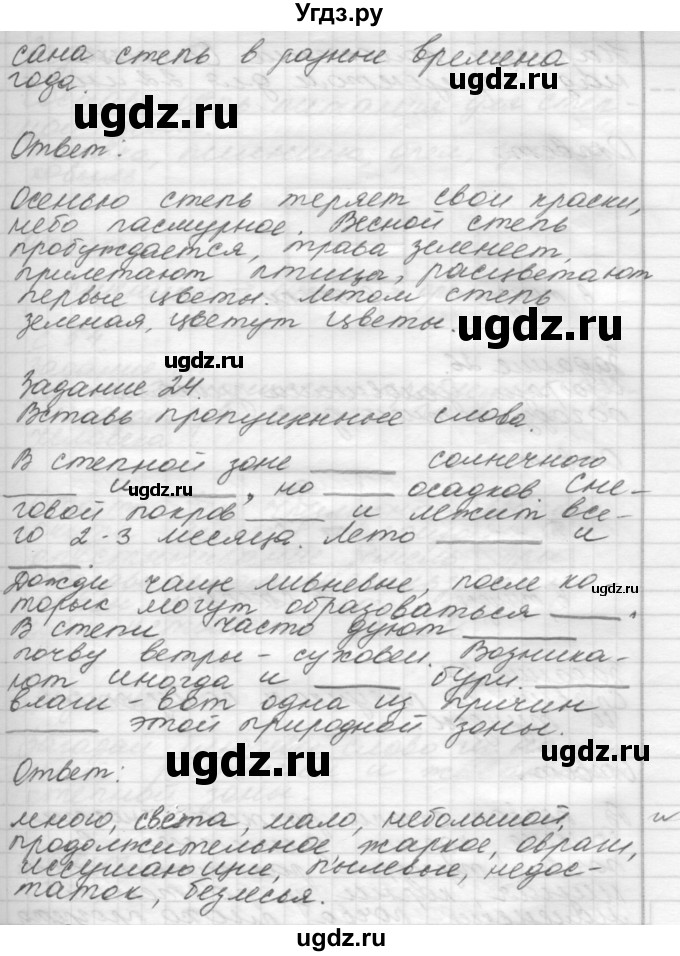 Угдз.ру
сана степь в разные времена
года.
ugdz.ru
ugdz.ru
Ответ:
Осенью степь теряет свои краски,
небо пасмурное. Весной степь
пробуждается, трава зеленеет,
прилетают птица, расцветают
первые цветы. Летом степь
зеленая, цветут цветы.
ugdz.ru
ugdz.ru
Задание 24.
Вставь пропущенные слова.
В степной зоне ____ солнечного
____ и ____, но ____ осадков. Сне-
ugdz.ru
говой покров ____ и лежит все-
го 2-3 месяца. Лето ____ и
____.
Дожди чаще ливневые, после ко
ugdz.ru
торых могут образоваться ____.
В степи часто дуют ____
почву ветры - суховеи. Возника-
ют иногда и ____ бури. ____
влаги - вот одна из причин
____ этой природной зоны.
ugdz.ru
ugdz.ru
Ответ:
много, света, мало, небольшой,
продолжительное жаркое, овраги,
иссушающие, пылевые, недос-
таток, безлесья.
ugdz.ru
ugdz.ru